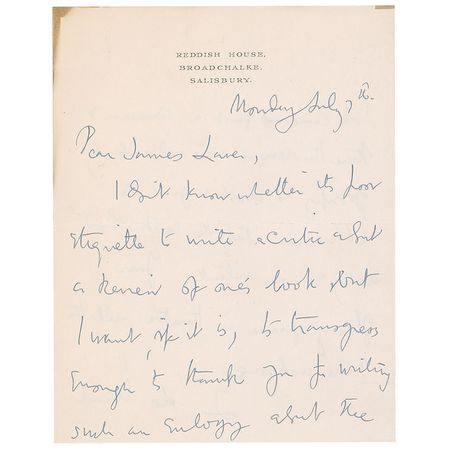 REDDISH HOUSE,
BROADCHALKE,
SALISBURY.
Monday July 7th.
Dear James Laver,
I don't know whether its poor
etiquette to write a critic about
a review of one's book, but
I want, if it is, to transgress
enough to thank you for writing
such an eulogy about the